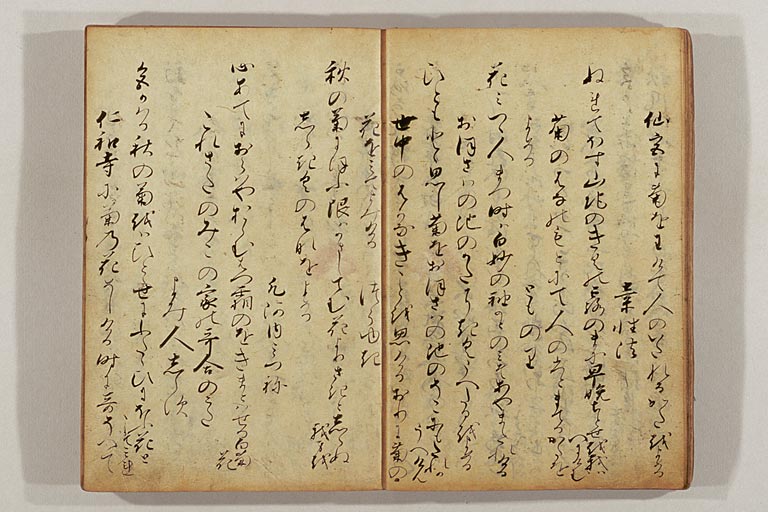 仙宮に菊をわけて人のいたれるかたをよめる
素性法
ぬれてほす山ちのきくの露のまに早晩ちとせを我は
菊のはなのもとにて人の人まてるかたを
よめる　とものり
花みつゝ人まつ時は白妙の袖かとのみそあやまたれける
おほさはの池のかたにきくうへたるをよめる
ひともとゝ思し菊をおほさはの池のそこにもたれか
うへけん
世中のはかなきことを思けるおりに菊の
花をみてよみける　つらゆき
秋の菊にほふ限はかさしてむ花よりさきとしらぬ
我身を
しらきくのはなをよめる
凡河内みつね
心あてにおらはやおらむはつ霜のをきまとはせる白菊
花
これさたのみこの家の哥合のうた
よみ人しらす
色かはる秋の菊をはひとゝせにふたゝひにほふ花と
こそみれ
仁和寺に菊の花めしける時に哥そへて